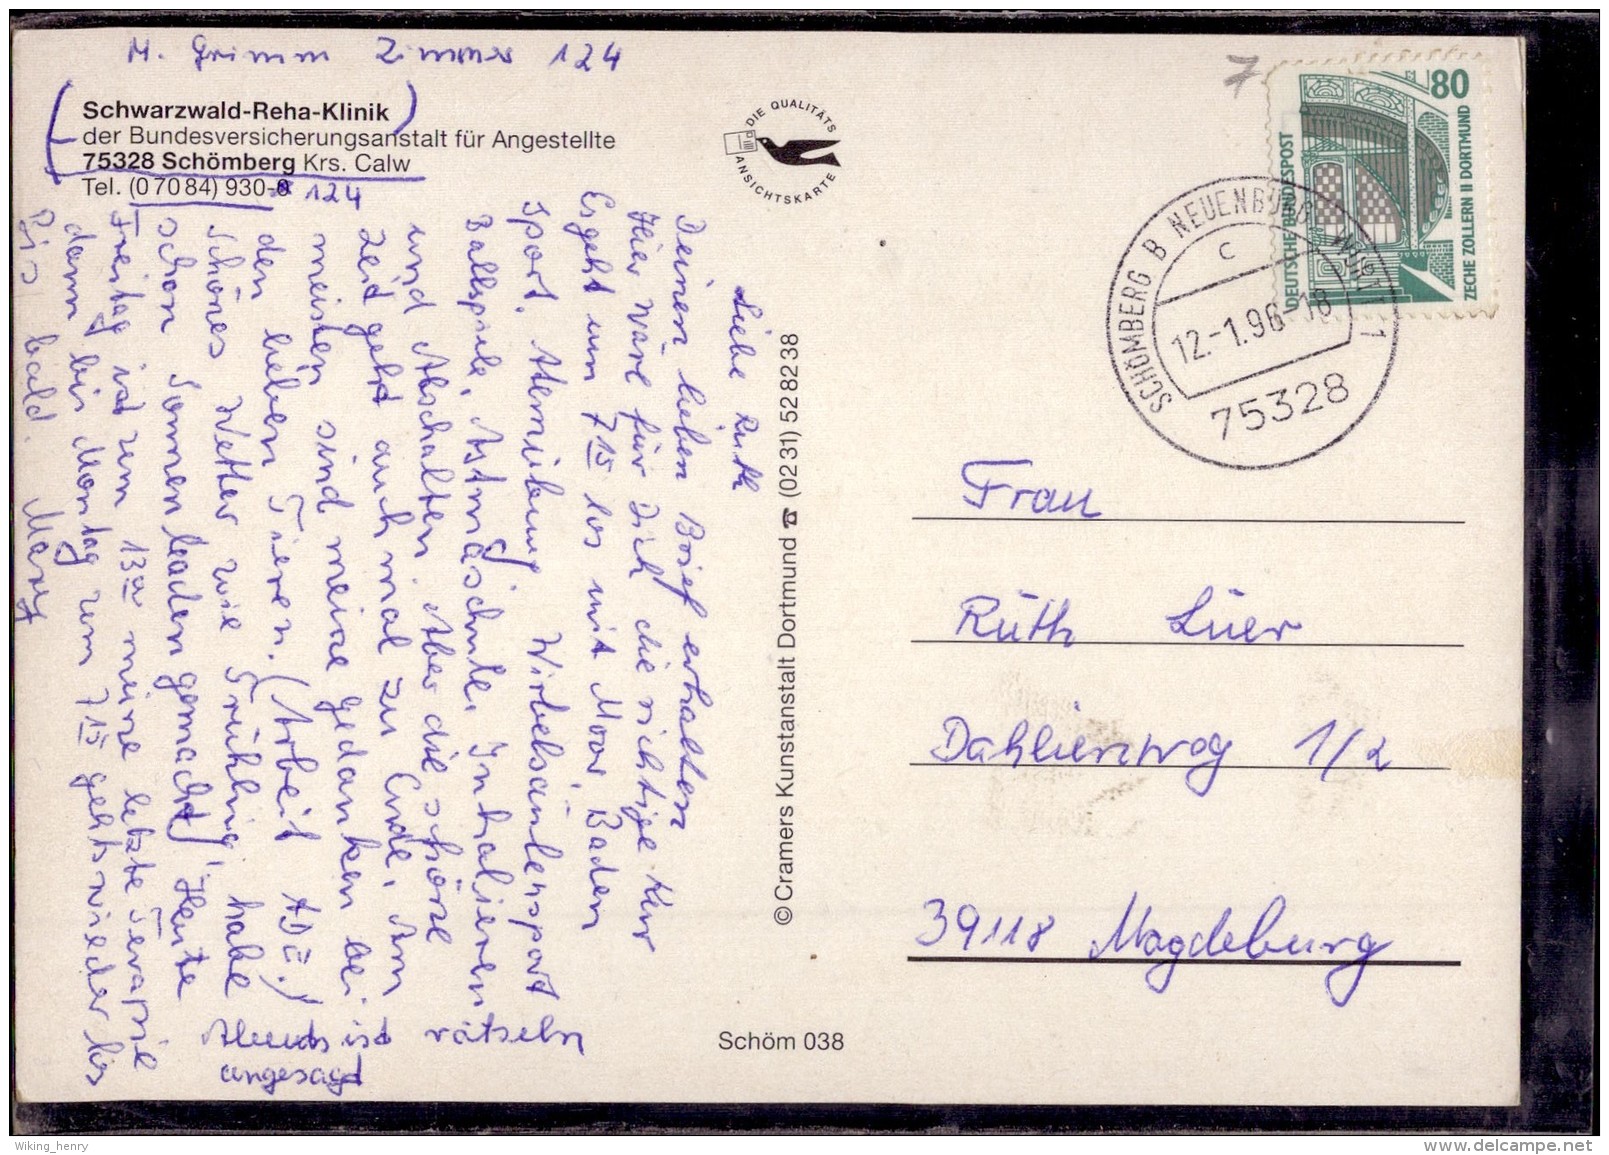 M. Grimm Zimmer 124
Schwarzwald-Reha-Klinik
der Bundesversicherungsanstalt für Angestellte
75328 Schömberg Krs. Calw
Tel. (07084) 930-0 124
Liebe Ruth
Deinen lieben Brief erhalten
Hier wäre für Dich die richtige Kur
Es geht um 7 15 los mit Moor, Baden
Sport, Atemübung, Wirbelsäulensport
Ballspiele, Astmaschule, Inhalieren
und Abschalten. Aber die schöne
Zeit geht auch mal zu Ende. Am
meisten sind meine Gedanken bei
den lieben Tieren. (Arbeit ADE.)
Schönes Wetter wie Frühling, habe
schon Sonnenbaden gemacht, Heute
Freitag ist um 13 00 meine letzte Terapie
dann bis Montag um 7 15 gehts wieder los
Bis bald. Mary
Abends ist rätseln
angesagt
DIE QUALITÄTS
ANSICHTSKARTE
© Cramers Kunstanstalt Dortmund ☎ (0231) 528238
Schöm 038
7
80
DEUTSCHE BUNDESPOST
ZECHE ZOLLERN II DORTMUND
SCHÖMBERG B NEUENBÜRG (WÜRTT) 1
c
12.-1.96-18
75328
Frau
Ruth Lüer
Dahlienweg 1/2
39118 Magdeburg
Wiking_henry
www.delcampe.net